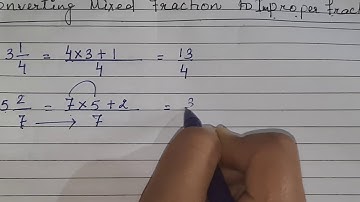 onverting Mixed Fraction to Improper Fract
3 1/4 = 4×3+1/4 = 13/4
5 2/7 = 7×5+2/7 = 3